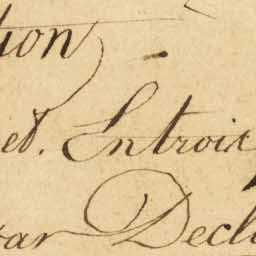 tion
et. Introit
ar Decl